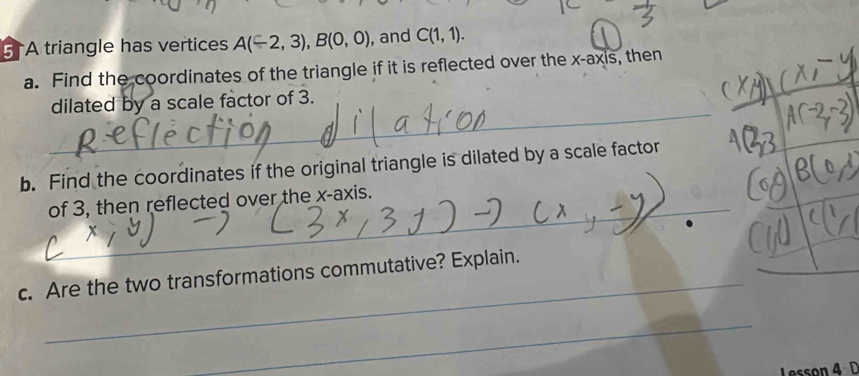 1/3
5 A triangle has vertices A(−2, 3), B(0, 0), and C(1, 1).
1
a. Find the coordinates of the triangle if it is reflected over the x-axis, then
dilated by a scale factor of 3.
Reflection dilation
(x,y) (x,-y
A(-2,-3)
b. Find the coordinates if the original triangle is dilated by a scale factor
of 3, then reflected over the x-axis.
(x,y) → (3x,3y) → (x,-y)
c. Are the two transformations commutative? Explain.
Lesson 4 D